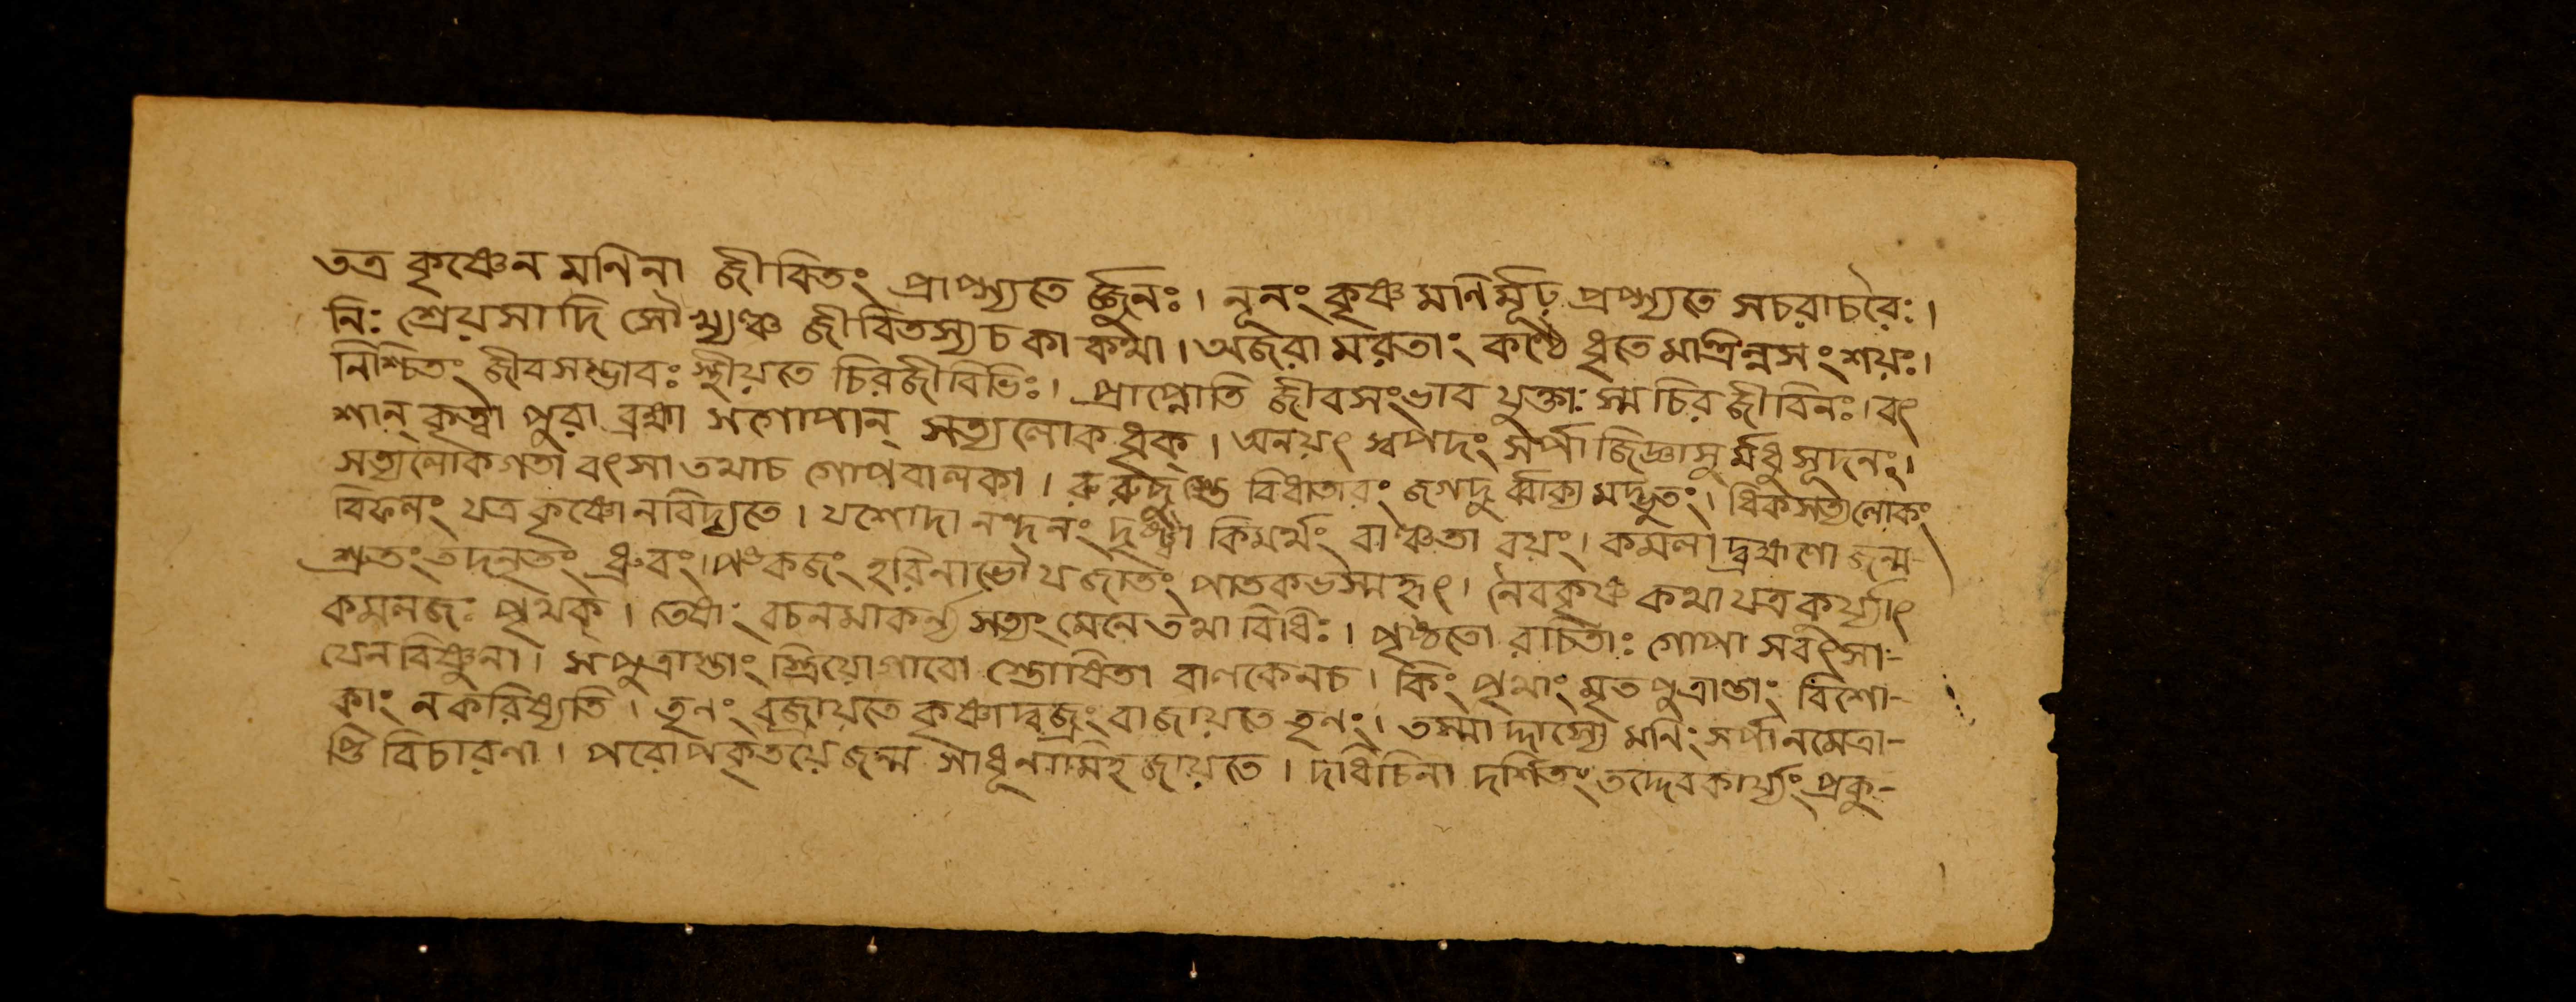 তত্র কৃষ্ণেন মনিনা জীবিতং প্রাপ্স্যতে র্জুনঃ। নূনং কৃষ্ণ মনির্মূঢ় প্রপ্স্যতে সচরাচরৈঃ।
নিঃ শ্রেয়সাদি সৌখ্যঞ্চ জীবিতস্যচ কা কথা। অজরা মরতাং কণ্ঠে ধৃতে মাস্ত্বিন্নসংশয়ঃ।
নিশ্চিতং জীবসম্ভাবঃ স্থীয়তে চিরজীবিভিঃ। প্রাপ্নোতি জীবসংভাব যুক্তাঃ স্ম চির জীবিনঃ। বৎ
শান্ কৃত্বা পুরা ব্রহ্মা সগোপান্ সত্যলোকধৃক্। অনয়ৎ স্বপদং সর্পা জিজ্ঞাসুর্মধুসূদনং।
সত্যলোকগতা বৎসা তথাচ গোপবালকা। রুরুদুস্তে বিধাতারং জগদুর্ব্বাক্য মদ্ভুতং। ধিকসত্যলোকং
বিফলং যত্র কৃষ্ণোনবিদ্যতে। যশোদা নন্দনং দৃষ্ট্বা কিমর্থং বাঞ্চতা বয়ং। কমলাদ্ব্রহ্মণো জন্ম
শ্রুতং তদনৃতং ধ্রুবং। পঙ্কজং হরিনাভৌ যজাতং পাতকভস্মহৃৎ। নৈবকৃষ্ণ কথা যত্র কুর্য্যাৎ
কমলজঃ পৃথক্। তেষাং বচনমাকর্ন্য সত্যং মেনে তথা বিধিঃ। পৃষ্ঠতো রচিতাঃ গোপা সবৎসা-
যেনবিষ্ণুনা। সপুত্রাস্তাং স্ত্রিয়োগাবো স্তোষিতা বালকেনচ। কিং পৃথাং মৃতপুত্রাস্তাং বিশো-
কাং নকরিষ্যতি। তৃনং বজ্রায়তে কৃষ্ণাদ্বজ্রং বা জায়তে তৃনং। তস্মাদ্দাস্যে মনিং সর্পানমেত্রা-
স্তি বিচারনা। পরোপকৃতয়ে জন্ম সাধূনামিহ জায়তে। দধিচিনা দর্শিতং তদ্দেবকার্য্যং প্রকু-